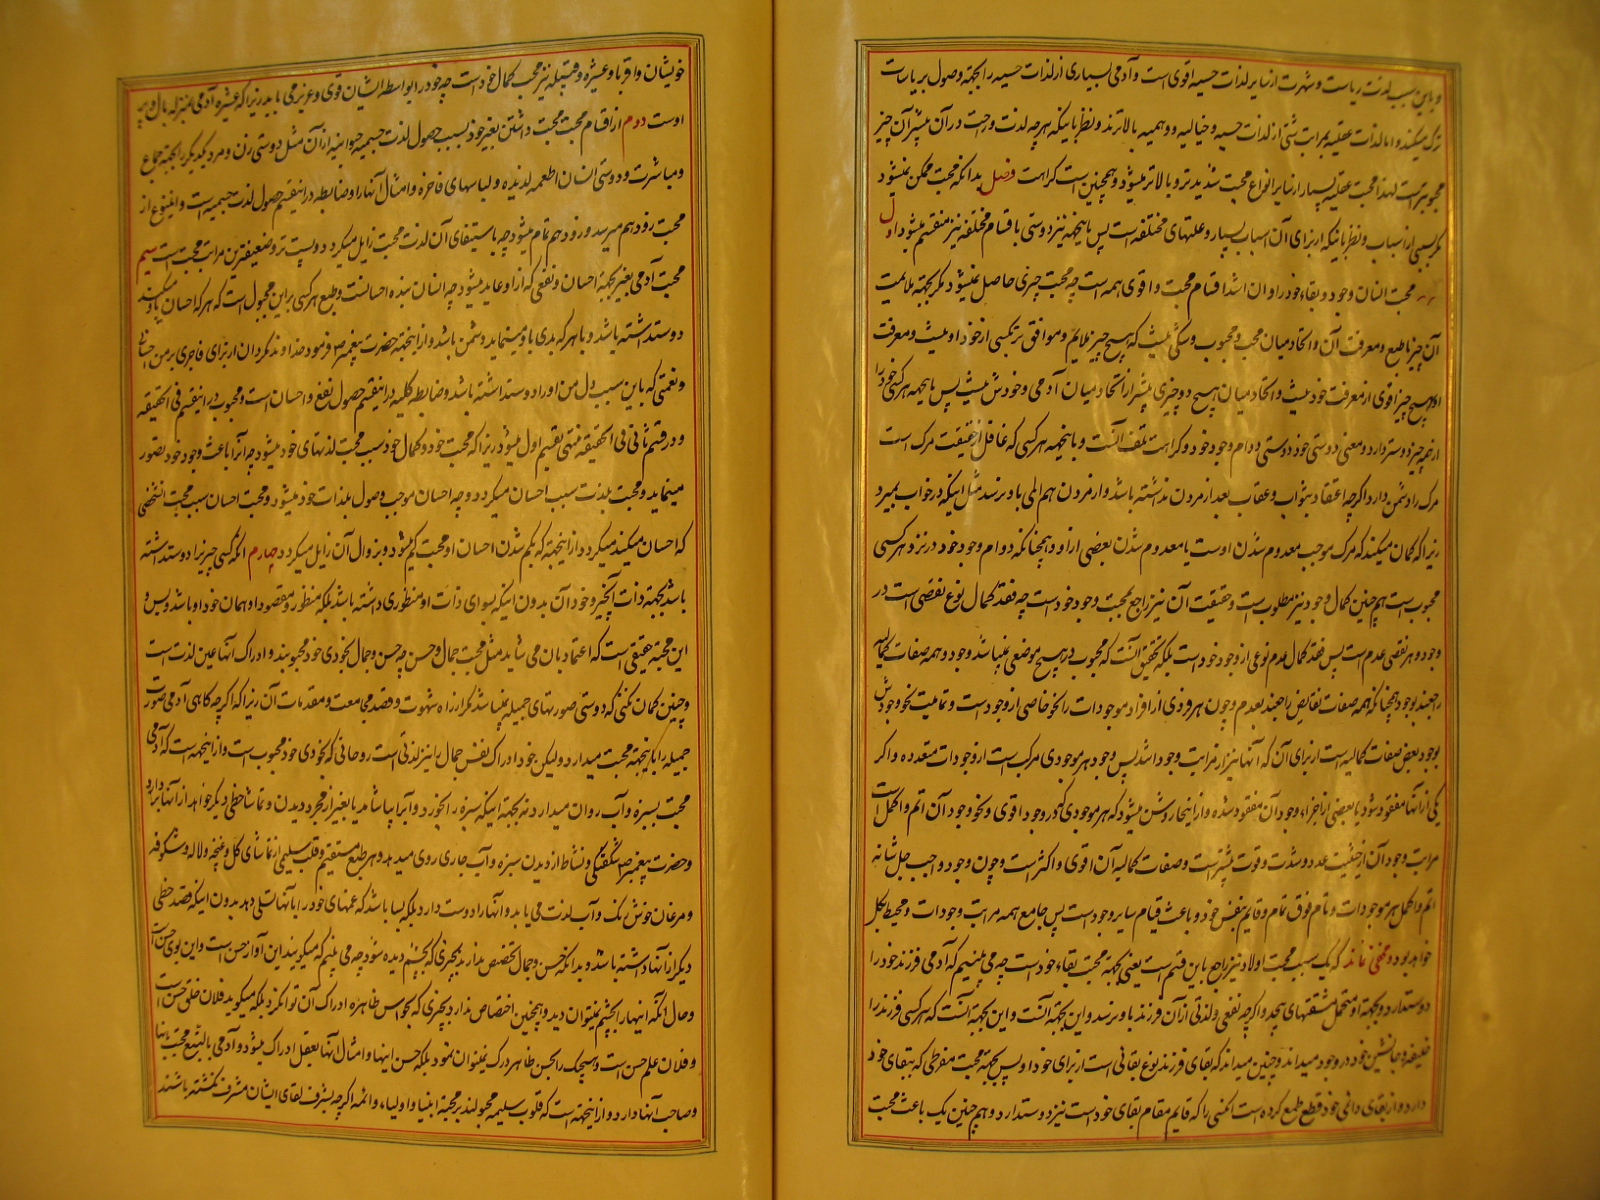 و باین سبب لذت ریاست و شهرت از سایر لذات حسیه اقوی است و آدمی بسیاری از لذات حسیه را بجهة وصول بریاست
ترک میکند و اما لذات عقلیه بمراتب شتی از لذات حسیه و خیالیه و وهمیه بالاترند و نظر باینکه هر چه لذت و راحت در آن بیشتر آن چیز
محبوبتر است لهذا محبت عقلیه بسیار از سایر انواع محبت شدیدتر و بالاتر میشود و همچنین است کراهت فصل بدانکه محبت ممکن نمیشود
مگر بسببی از اسباب و نظر باینکه از برای آن اسباب بسیار و علتهای مختلفه است پس باینجهة نیز دوستی باقسام مختلفه نیز منقسم میشود اول
محبت انسان وجود و بقاء خود را و ان اشد اقسام محبت و اقوی همه است چه محبت چیزی حاصل نمیشود مگر بجهة ملایمت
آن چیز با طبع و معرفت آن و اتحاد میان محب و محبوب و شکی نیست که هیچ چیز ملایم و موافق تر بکسی از خود او نیست و معرفت
او بهیچ چیز اقوی از معرفت خود نیست و اتحاد میان هیچ دو چیزی بیشتر از اتحاد میان آدمی و خودش نیست پس باینجهة هر کسی خود را
از همه چیز دوستر دارد و معنی دوستی خود دوستی دوام وجود خود و کراهت تلف آنست و باینجهة هر کسی که غافل از حقیقت مرک است
مرک را دشمن دارد اگر چه اعتقاد بثواب و عقاب بعد از مردن نداشته باشد و از مردن هم المی باو نرسد مثل اینکه در خواب بمیرد
زیرا که گمان میکند که مرک موجب معدوم شدن اوست یا معدوم شدن بعضی از او و همچنانکه دوام وجود خود در نزد هر کسی
محبوب است هم چنین کمال وجود نیز مطلوب است و حقیقت آن نیز راجع بمحبت وجود خود است چه فقد کمال نوع نقصی است در
وجود و هر نقصی عدم است پس فقد کمال عدم نوعی از وجود خود است بلکه تحقیق آنست که محبوب در هیچ موضعی نمیباشد وجود و همه صفات کمالیه
راجعند بوجود همچنانکه همه صفات نقایض راجعند بعدم و چون هر فردی از افراد موجودات را نحو خاصی از وجود است و تمامیت نحو وجودش
بوجود بعض صفات کمالیه است از برای آن که آنها نیز از مراتب وجود اند پس وجود هر موجودی مرکب است از وجودات متعدده و اگر
یکی از آنها مفقود شود بعضی از اجزاء وجود آن مفقود شده و از اینجا روشن میشود که هر موجودی که وجود او اقوی و نحو وجود آن اتم و اکمل است
مراتب وجود آن از حیثیت عدد و شدت و قوت بیشتر است و صفات کمالیه آن اقوی و اکثر است و چون وجود واجب جل شانه
اتم و اکمل هر موجودات و تام فوق تمام و قایم بنفس خود و باعث قیام سایر وجود است پس جامع همه مراتب وجودات و محیط بکل
خواهد بود و مخفی نماند که یک سبب محبت اولاد نیز راجع باین قسم است یعنی بجهة محبت بقاء خود است چه می بینیم که آدمی فرزند خود را
دوستدارد و بجهة او متحمل مشقتهای بیحد و اگر چه نفعی و لذتی از آن فرزند باو نرسد و این بجهة آنست و این بجهة آنست که هر کسی فرزند را
خلیفه و جانشین خود در وجود میداند و چنین میداند که بقای فرزند نوع بقائی است از برای خود او پس بجهة محبت مفرطی که ببقای خود
دارد و از بقای دائمی خود قطع طمع کرده است کسی را که قایم مقام بقای خود است نیز دوستدارد و هم چنین یک باعث محبت
خویشان و اقربا و عشیره و قبیله نیز محبت کمال خود است چه خود را بواسطه ایشان قوی و عزیز می یابد زیرا که عشیره آدمی بمنزله بال و پر
اوست دوم از اقسام محبت محبت داشتن بغیر خود بسبب حصول لذت جسمیه حیوانیه از آن مثل دوستی زن و مرد یکدیگر را بجهة جماع
و مباشرت و دوستی انسان اطعمه لذیذه و لباسهای فاخره و امثال آنها را و ضابطه در اینقسم حصول لذت جسمیه است و این نوع از
محبت زود هم میرسد و زود هم تمام میشود چه باستیفای آن لذت محبت زایل میگردد و پست تر و ضعیفترین مراتب محبت است سیم
محبت آدمی بغیر بجهة احسان و نفعی که از او عاید میشود چه انسان بنده احسانست و طبع هر کسی بر این مجبول است که هر که احسان باو میکند
دوستداشته باشد و با هر که بدی باو مینماید دشمن باشد و از اینجهة حضرت پیغمبر ص فرمود خداوندا مگردان از برای فاجری بر من احسانی
و نعمتی که باین سبب دل من او را دوستداشته باشد و ضابطه کلیه در اینقسم حصول نفع و احسان است و محبوب در اینقسم فی الحقیقه
و در قسم ثانی فی الحقیقه منتهی بقسم اول میشود زیرا که محبت خود و کمال خود سبب محبت لذتهای خود میشود چه آنرا باعث وجود خود تصور
مینماید و محبت بلذت سبب احسان میگردد و چه احسان موجب وصول بلذات خود میشود و محبت احسان سبب محبت آنشخص
که احسان میکند میگردد از اینجهة که بکم شدن احسان او محبت کم میشود و بزوال آن زایل میگردد چهارم آنکه کسی چیزی را دوستداشته
باشد بجهة ذات آنچیز و خود آن بدون اینکه بسوای ذات او منظوری داشته باشد بلکه منظور و مقصود او همان خود او باشد و بس و
این محبة حقیقی است که اعتماد بان می شاید مثل محبت جمال و حسن چه حسن و جمال بخودی خود محبوبند و ادراک آنها عین لذت است
و چنین گمان نکنی که دوستی صورتهای جمیله نمیباشد مگر از راه شهوت و قصد مجامعت و مقدمات آن زیرا که اگر چه گاهی آدمی صورت
جمیله را باینجهة محبت میدارد و لیکن خود ادراک نفس جمال را نیز لذتی است روحانی که بخودی خود محبوب است و از اینجهة است که آدمی
محبت بسبزه و آب روان میدارد نه بجهة اینکه سبزه را بخورد و آبرا بیاشامد یا بغیر از مجرد دیدن و تماشا حظی دیگر خواهد از آنها بردارد
و حضرت پیغمبر ص را شکفتگی و نشاط از دیدن سبزه و آب جاری روی میدهد و هر طبع مستقیم و قلب سلیمی از تماشای گل و غنچه و لاله و شکوفه
و مرغان خوش رنک و آب لذت می یابد و آنها را دوست دارد بلکه بسا باشد که غمهای خود را بآنها تسلی دهد بدون اینکه قصد حظی
دیگر از آنها داشته باشد و بدانکه حسن و جمال تخصیص ندارند بچیزی که بچشم دیده شود چه می بینم که میگویند این آواز حسن است و این بوی حسن است
و حال آنکه اینها را بچشم نمیتوان دید و همچنین اختصاص ندارد بچیزی که بحواس ظاهره ادراک آن توان کرد بلکه میگوید فلان خلق حسن است
و فلان علم حسن است و هیچیک را بحس ظاهر درک نمیتوان نمود بلکه حسن اینها و امثال آنها بعقل ادراک میشود و آدمی بالطبع محبت باینها
و صاحب آنها دارد و از اینجهة است که قلوب سلیمه مجبولند بر محبة انبیا و اولیا، و ائمه اگر چه بشرف لقای ایشان مشرف نگشته باشند